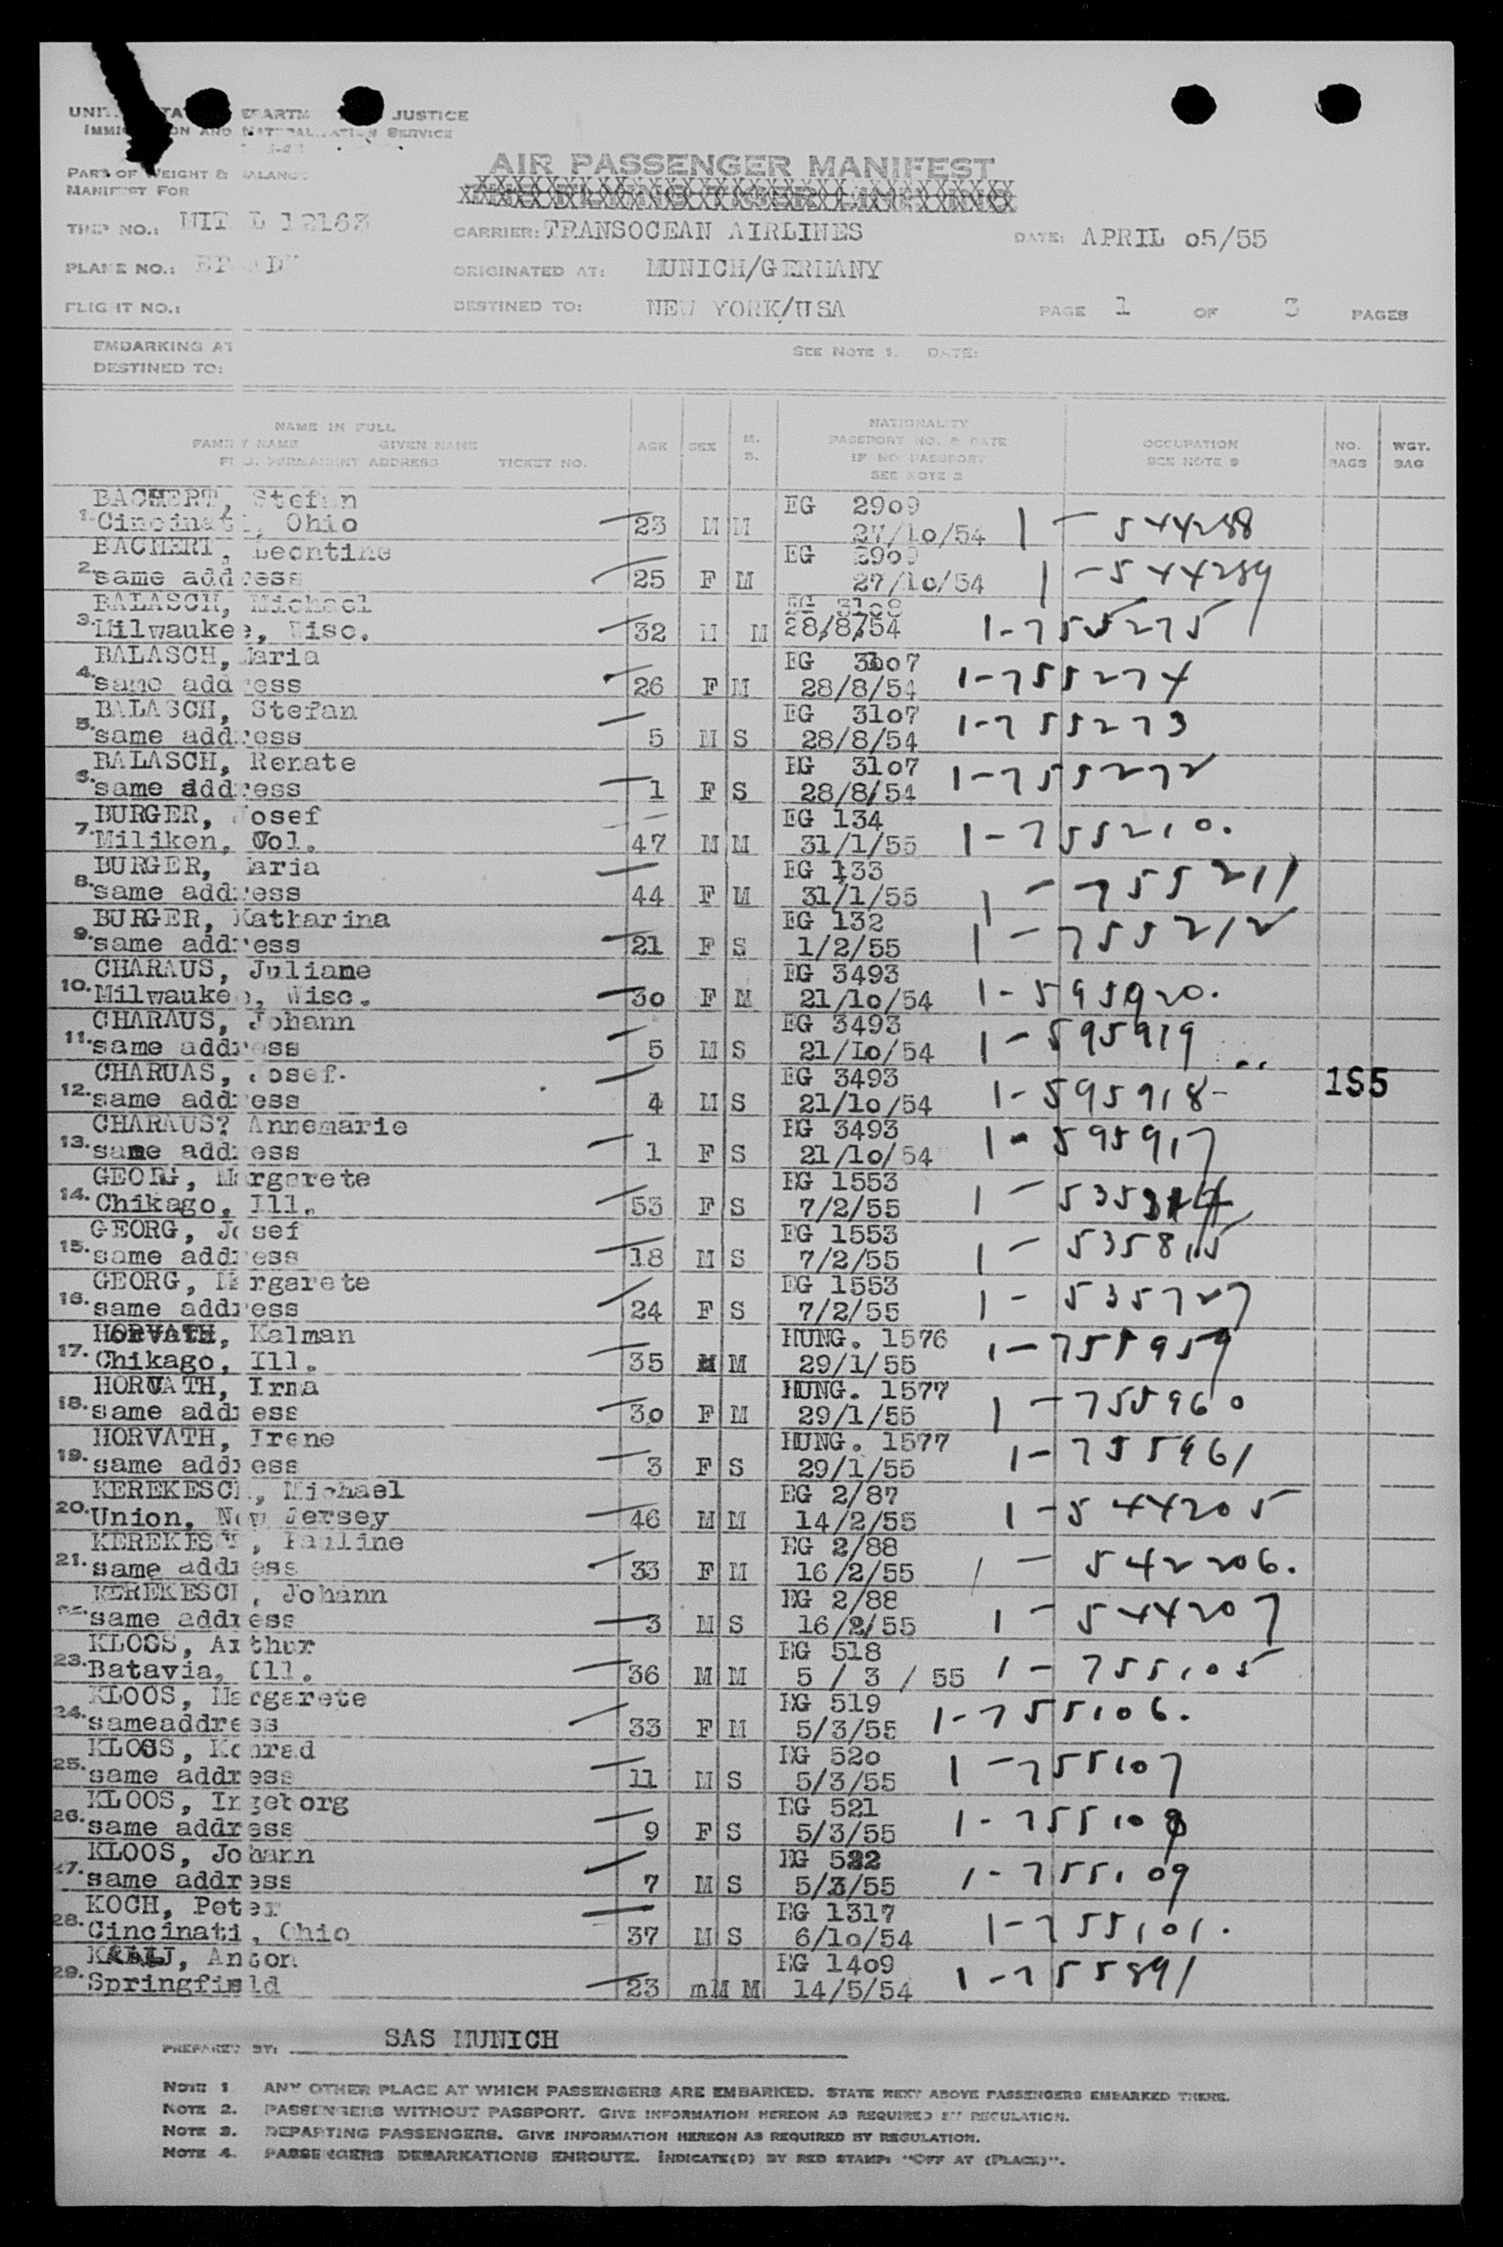 JUSTICE
SERVICE
MANIFEST FOR
AIR PASSENGER MANIFEST
TRIP NO.: 12163
CARRIER: TRANSOCEAN AIRLINES
DATE: APRIL 05/55
PLANE NO.:
ORIGINATED AT: MUNICH/GERMANY
FLIGHT NO.:
DESTINED TO: NEW YORK/USA
PAGE 1 OF 3 PAGES
EMBARKING AT
SEE NOTE 1. DATE:
DESTINED TO:
NAME IN FULL
FAMILY NAME GIVEN NAME
PERMANENT ADDRESS TICKET NO.
AGE SEX M. S.
NATIONALITY
PASSPORT NO. & DATE
IF NO PASSPORT
SEE NOTE 2
OCCUPATION
SEE NOTE 3
NO. BAGS
WGT. BAG
BACHERT, Stefan EG 2909
1. Cincinati, Ohio 23 M M 27/10/54 1-544288
BACHERT, Leontine EG 2909
2. same address 25 F M 27/10/54 1-544289
BALASCH, Michael EG 3108
3. Milwaukee, Wisc. 32 M M 28/8/54 1-755275
BALASCH, Maria EG 3007
4. same address 26 F M 28/8/54 1-755274
BALASCH, Stefan EG 3107
5. same address 5 M S 28/8/54 1-755273
BALASCH, Renate EG 3107
6. same address 1 F S 28/8/54 1-755272
BURGER, Josef EG 134
7. Miliken, Col. 47 M M 31/1/55 1-755210.
BURGER, Maria EG 133
8. same address 44 F M 31/1/55 1-755211
BURGER, Katharina EG 132
9. same address 21 F S 1/2/55 1-755212
CHARAUS, Juliane EG 3493
10. Milwaukee, Wisc. 30 F M 21/10/54 1-595920.
CHARAUS, Johann EG 3493
11. same address 5 M S 21/10/54 1-595919
CHARUAS, Josef. EG 3493
12. same address 4 M S 21/10/54 1-595918- 155
CHARAUS? Annemarie EG 3493
13. same address 1 F S 21/10/54 1-595917
GEORG, Margarete EG 1553
14. Chikago, Ill. 53 F S 7/2/55
GEORG, Josef EG 1553
15. same address 18 M S 7/2/55 1-535815
GEORG, Margarete EG 1553
16. same address 24 F S 7/2/55 1-535727
HORVATH, Kalman HUNG. 1576
17. Chikago, Ill. 35 M M 29/1/55 1-755959
HORVATH, Irma HUNG. 1577
18. same address 30 F M 29/1/55 1-755960
HORVATH, Irene HUNG. 1577
19. same address 3 F S 29/1/55 1-755961
KEREKESCH, Michael EG 2/87
20. Union, New Jersey 46 M M 14/2/55 1-544205
KEREKESCH, Pauline EG 2/88
21. same address 33 F M 16/2/55 1-542206.
KEREKESCH, Johann EG 2/88
same address 3 M S 16/2/55 1-544207
KLOSS, Arthur EG 518
23. Batavia, Ill. 36 M M 5 / 3 / 55 1-755105
KLOOS, Margarete EG 519
24. sameaddress 33 F M 5/3/55 1-755106.
KLOSS, Konrad EG 520
25. same address 11 M S 5/3/55 1-755107
KLOOS, Ingeborg EG 521
26. same address 9 F S 5/3/55 1-755108
KLOOS, Johann EG 522
27. same address 7 M S 5/3/55 1-755109
KOCH, Peter EG 1317
28. Cincinati, Ohio 37 M S 6/10/54 1-755101.
Anton EG 1409
29. Springfield 23 mM M 14/5/54 1-755891
PREPARED BY: SAS MUNICH
NOTE 1. ANY OTHER PLACE AT WHICH PASSENGERS ARE EMBARKED. STATE NEXT ABOVE PASSENGERS EMBARKED THERE.
NOTE 2. PASSENGERS WITHOUT PASSPORT. GIVE INFORMATION HEREON AS REQUIRED BY REGULATION.
NOTE 3. DEPARTING PASSENGERS. GIVE INFORMATION HEREON AS REQUIRED BY REGULATION.
NOTE 4. PASSENGERS DEBARKATIONS ENROUTE. INDICATE(D) BY RED STAMP: "OFF AT (PLACE)".